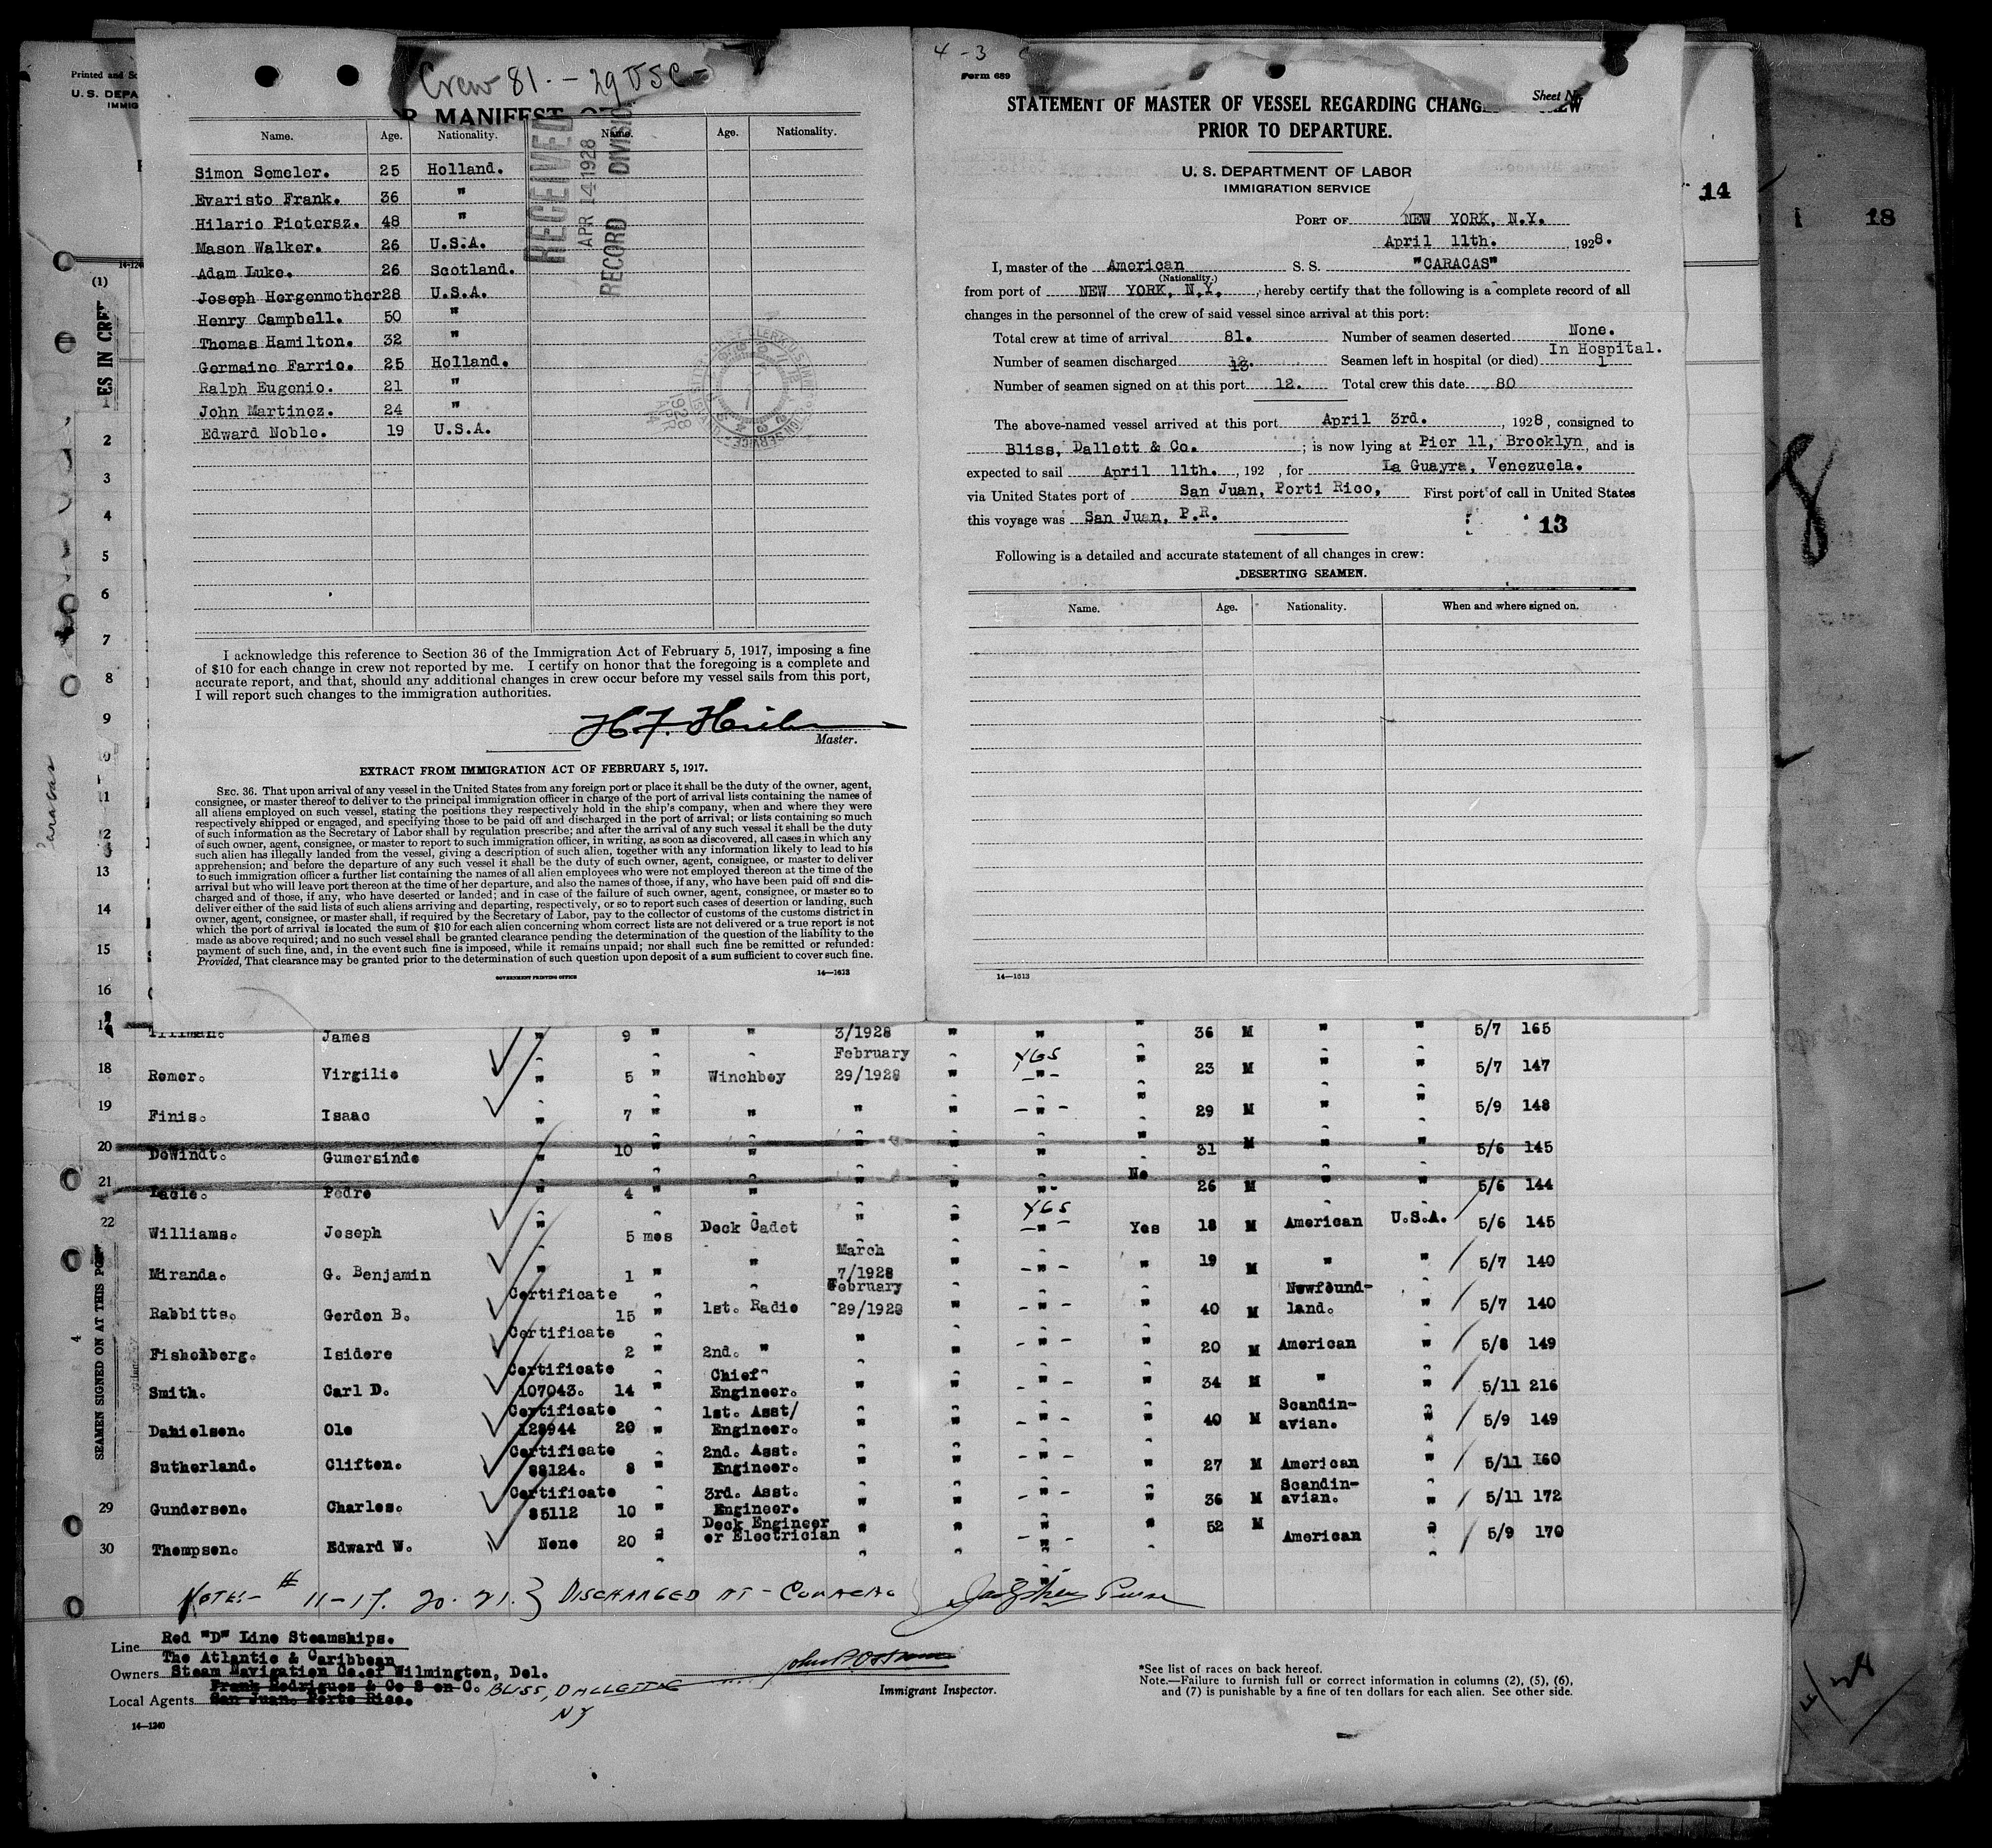 Printed and
U. S. DEPA
IMMIG
Crew 81. - 29 USC -
MANIFEST
Name. Age. Nationality. Name. Age. Nationality.
Simon Semeler. 25 Holland.
Evaristo Frank. 36 "
Hilario Pietersz. 48 "
Mason Walker. 26 U.S.A.
Adam Luke. 26 Scotland.
Joseph Hergenmother 28 U.S.A.
Henry Campbell. 50 "
Thomas Hamilton. 32 "
Germaine Farrie. 25 Holland.
Ralph Eugenio. 21 "
John Martinez. 24 "
Edward Noble. 19 U.S.A.
RECEIVED
APR 14 1928
RECORD DIVISION
I acknowledge this reference to Section 36 of the Immigration Act of February 5, 1917, imposing a fine
of $10 for each change in crew not reported by me. I certify on honor that the foregoing is a complete and
accurate report, and that, should any additional changes in crew occur before my vessel sails from this port,
I will report such changes to the immigration authorities.
Master.
EXTRACT FROM IMMIGRATION ACT OF FEBRUARY 5, 1917.
SEC. 36. That upon arrival of any vessel in the United States from any foreign port or place it shall be the duty of the owner, agent,
consignee, or master thereof to deliver to the principal immigration officer in charge of the port of arrival lists containing the names of
all aliens employed on such vessel, stating the positions they respectively hold in the ship's company, when and where they were
respectively shipped or engaged, and specifying those to be paid off and discharged in the port of arrival; or lists containing so much
of such information as the Secretary of Labor shall by regulation prescribe; and after the arrival of any such vessel it shall be the duty
of such owner, agent, consignee, or master to report to such immigration officer, in writing, as soon as discovered, all cases in which any
such alien has illegally landed from the vessel, giving a description of such alien, together with any information likely to lead to his
apprehension; and before the departure of any such vessel it shall be the duty of such owner, agent, consignee, or master to deliver
to such immigration officer a further list containing the names of all alien employees who were not employed thereon at the time of the
arrival but who will leave port thereon at the time of her departure, and also the names of those, if any, who have been paid off and dis-
charged and of those, if any, who have deserted or landed; and in case of the failure of such owner, agent, consignee, or master so to
deliver either of the said lists of such aliens arriving and departing, respectively, or so to report such cases of desertion or landing, such
owner, agent, consignee, or master shall, if required by the Secretary of Labor, pay to the collector of customs of the customs district in
which the port of arrival is located the sum of $10 for each alien concerning whom correct lists are not delivered or a true report is not
made as above required; and no such vessel shall be granted clearance pending the determination of the question of the liability to the
payment of such fine, and, in the event such fine is imposed, while it remains unpaid; nor shall such fine be remitted or refunded:
Provided, That clearance may be granted prior to the determination of such question upon deposit of a sum sufficient to cover such fine.
GOVERNMENT PRINTING OFFICE 14—1613
4 - 3
Form 689
Sheet
STATEMENT OF MASTER OF VESSEL REGARDING CHANG EW
PRIOR TO DEPARTURE.
U. S. DEPARTMENT OF LABOR
IMMIGRATION SERVICE
PORT OF NEW YORK, N.Y.
April 11th. , 1928.
I, master of the American S. S. "CARACAS"
(Nationality.)
from port of NEW YORK, N.Y. , hereby certify that the following is a complete record of all
changes in the personnel of the crew of said vessel since arrival at this port:
Total crew at time of arrival 81. Number of seamen deserted None.
In Hospital.
Number of seamen discharged 12. Seamen left in hospital (or died) 1
Number of seamen signed on at this port 12. Total crew this date 80
The above-named vessel arrived at this port April 3rd. , 1928, consigned to
Bliss, Dallett & Co. ; is now lying at Pier 11, Brooklyn, and is
expected to sail April 11th. , 192 , for La Guayra, Venezuela.
via United States port of San Juan, Porti Rico, First port of call in United States
this voyage was San Juan, P.R.
13
Following is a detailed and accurate statement of all changes in crew:
DESERTING SEAMEN.
Name. Age. Nationality. When and where signed on.
14—1613
14
18
8
(1)
ES IN CRE
2
3
4
5
6
7
8
9
11
13
14
15
16
James " 9 " " 3/1928 " " " 36 M " " 5/7 165
18 Romer. Virgilio " 5 " Winchboy February 29/1928 " Yes -"- " 23 M " " 5/7 147
19 Finis. Isaac " 7 " " " " -"- " 29 M " " 5/9 148
20 DeWindt. Gumersinde " 10 " " " " " " 31 M " " 5/6 145
21 Lacle. Pedro " 4 " " " " " No 26 M " " 5/6 144
22 Williams. Joseph " 5 mos Deck Cadet " " Yes -"- Yes 18 M American U.S.A. 5/6 145
Miranda. G. Benjamin " 1 " " March 7/1928 " -"- " 19 M " " 5/7 140
Rabbitts. Gordon B. Certificate 15 " 1st. Radio February 29/1928 " -"- " 40 M Newfound-land. " 5/7 140
Fishelberg. Isidore Certificate 2 " 2nd. " " " -"- " 20 M American " 5/8 149
Smith. Carl D. Certificate 107043. 14 " Chief Engineer. " " -"- " 34 M " " 5/11 216
Danielsen. Ole Certificate 128944 20 " 1st. Asst/ Engineer. " " -"- " 40 M Scandin-avian. " 5/9 149
Sutherland. Clifton. Certificate 88124. 8 " 2nd. Asst. Engineer. " " -"- " 27 M American " 5/11 160
29 Gundersen. Charles. Certificate 85112 10 " 3rd. Asst. Engineer. " " -"- " 36 M Scandin-avian. " 5/11 172
30 Thompson. Edward W. None 20 " Deck Engineer or Electrician " " -"- " 52 M American " 5/9 170
SEAMEN SIGNED ON AT THIS PORT
NOTE:- # 11-17. 20. 21. } DISCHARGED AT - CURACAO
Line Red "D" Line Steamships.
The Atlantic & Caribbean
Owners Steam Navigation Co. of Wilmington, Del.
Frank Rodriguez & Co S en C. BLISS, DALLETT & C
Local Agents San Juan. Porto Rico.
NY
Immigrant Inspector.
*See list of races on back hereof.
Note.—Failure to furnish full or correct information in columns (2), (5), (6),
and (7) is punishable by a fine of ten dollars for each alien. See other side.
14—1240